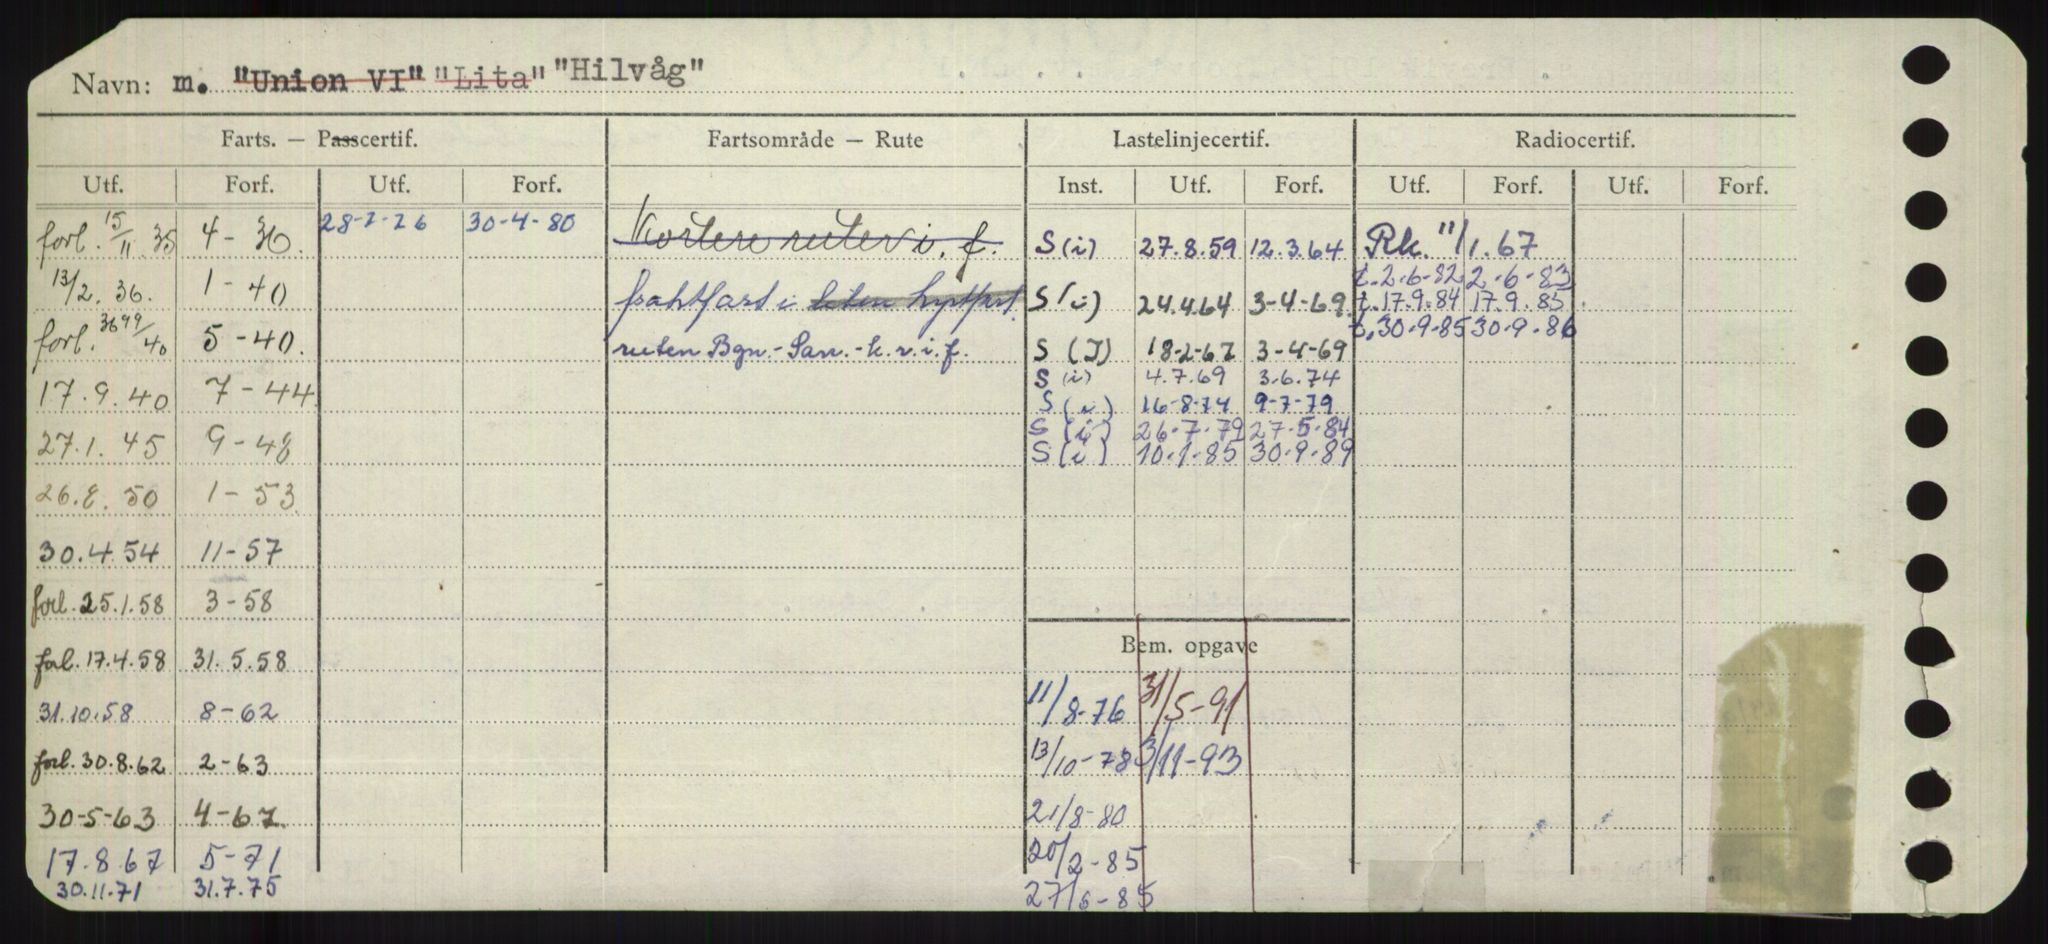 Navn: m. "Union VI" "Lita" "Hilvåg"
Farts. — Passcertif. Fartsområde — Rute Lastelinjecertif. Radiocertif.
Utf. Forf. Utf. Forf. Inst. Utf. Forf. Utf. Forf. Utf. Forf.
forl. 15/11.35 4-36. 28-7-76 30-4-80 Kortere ruter i. f. S (i) 27.8.59 12.3.64 Rk. 11/1.67
t.2.6-82 2.6-83
13/2.36. 1-40 fraktfart i liten kystfart. S (i) 24.4.64 3-4-69. t.17.9.84 17.9.85.
forl. 3699/40 5-40. t.30.9.85 30.9.86
ruten Bgn.-San.-k.v.i.f. S (I) 18-2-67 3-4-69
17.9.40 7-44. S (i) 4.7.69 3.6.74
S (i) 16-8-74 9-7-79
27.1.45 9-48 S (i) 26.7.79 27.5.84
S (i) 10.1.85 30.9.89
26.8.50 1-53
30.4.54 11-57
forl. 25.1.58 3-58
Bem. opgave
forl. 17.4.58 31.5.58
31.10.58 8-62 11/8-76 31/5-91
forl. 30.8.62 2-63 13/10-78 3/11-93
30-5-63 4-67. 21/8-80
17.8.67 5-71 20/2-85
30.11.71 31.7.75 27/6-85